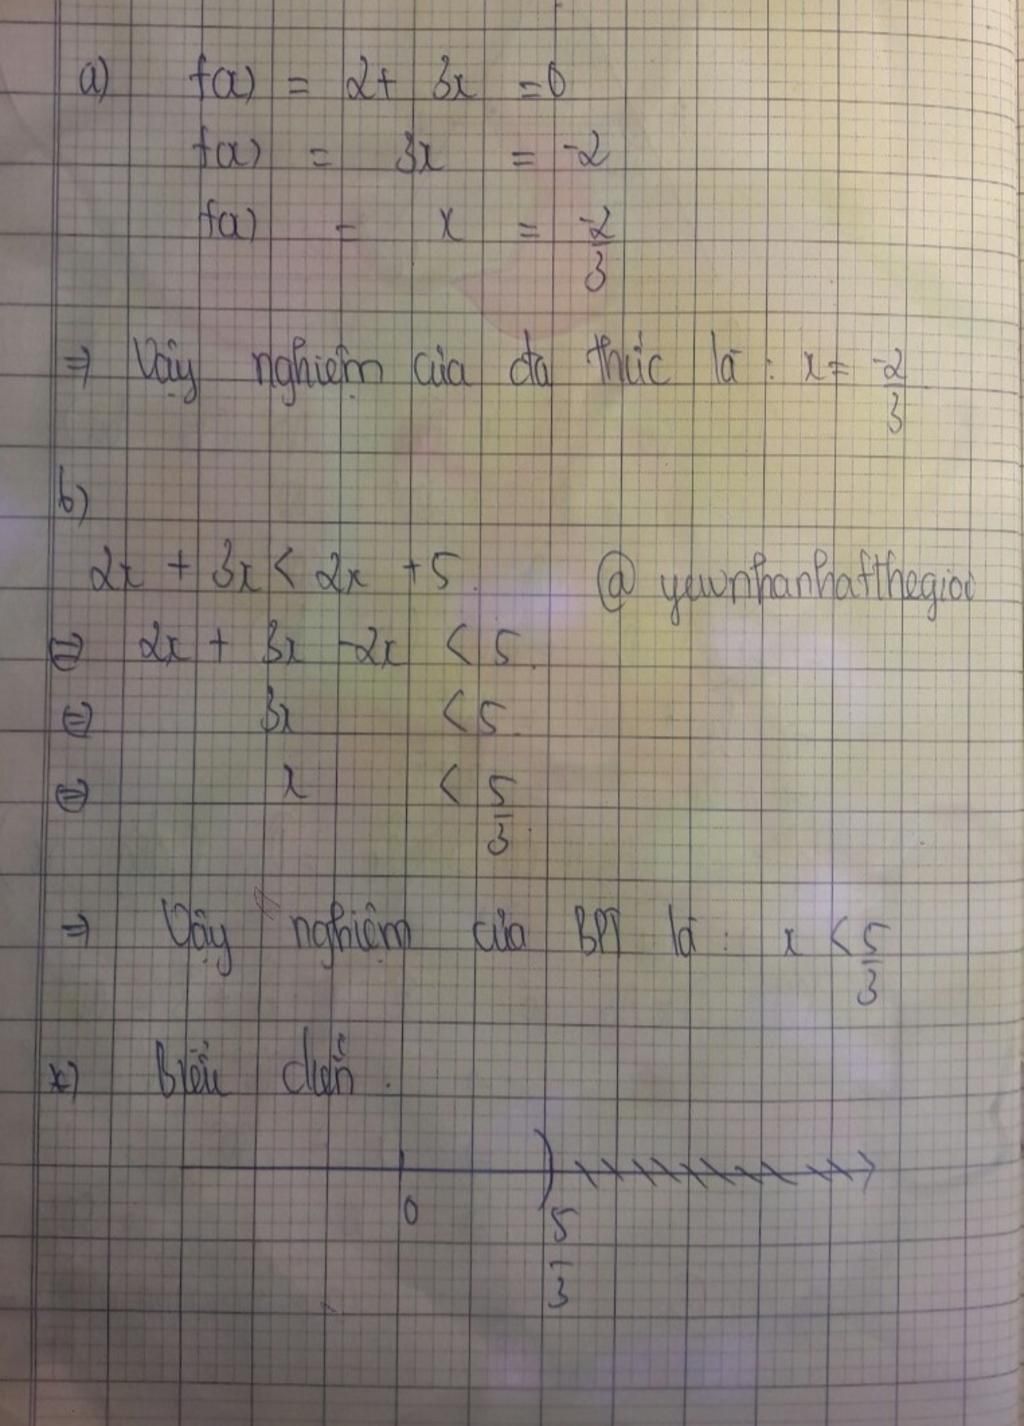 a) f(x) = 2+ 3x = 0
f(x) = 3x = -2
f(x) = x = -2/3
⇒ Vậy nghiệm của đa thức là : x = -2/3
b)
2x + 3x < 2x + 5. @ yewnhanhafthegioi
⇔ 2x + 3x - 2x < 5.
⇔ 3x < 5.
⇔ x < 5/3.
⇒ Vậy nghiệm của BPT là : x < 5/3
*) Biểu diễn.
0 5/3